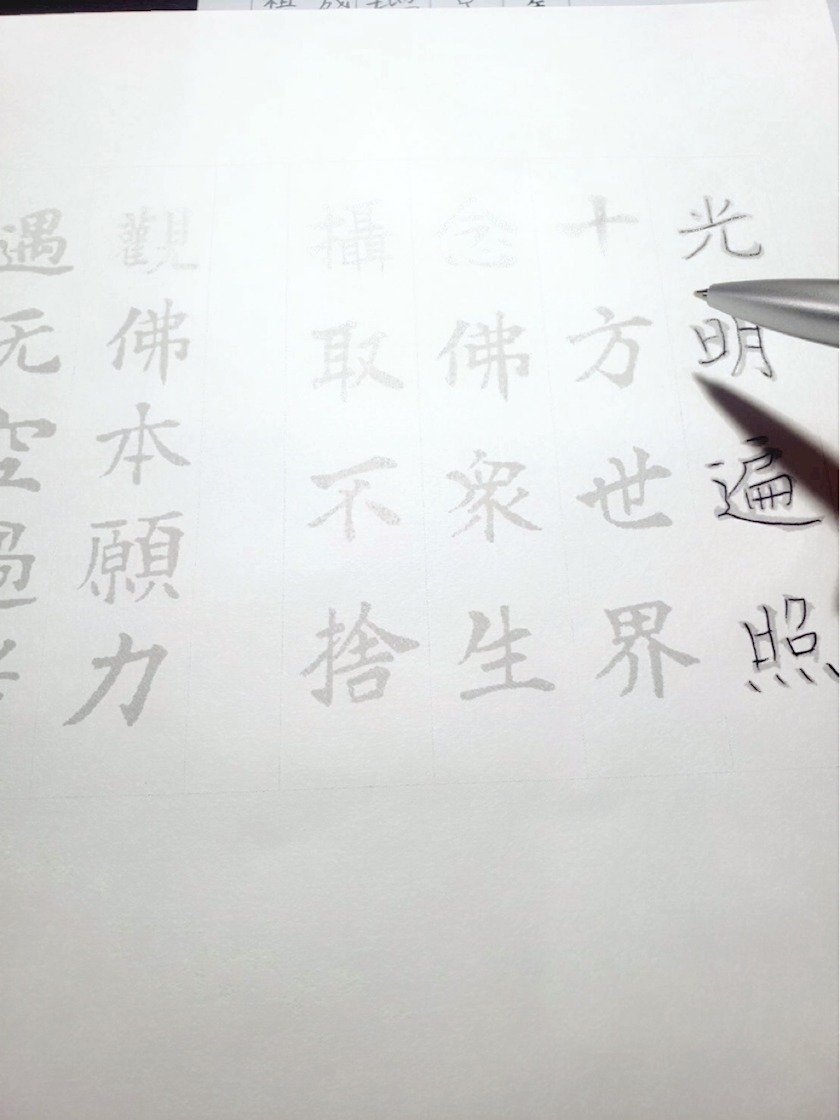 光明遍照
十方世界
念佛衆生
攝取不捨
觀佛本願力
遇无空過者